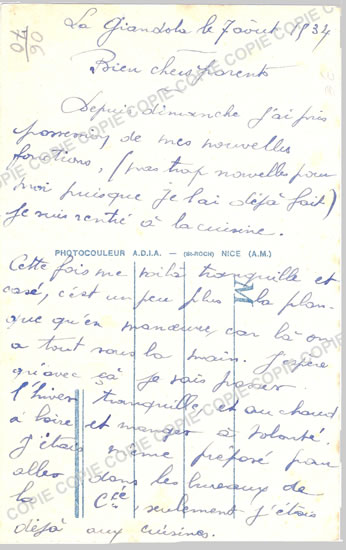 La Giandola le 7 août 1934
Bien chers parents
Depuis dimanche j'ai pris
possession de mes nouvelles
fonctions, (pas trop nouvelles pour
moi puisque je l'ai déjà fait)
Je suis rentré à la cuisine.
PHOTOCOULEUR A.D.I.A. — (St-ROCH) NICE (A.M.)
Cette fois me voilà tranquille et
casé, c'est un peu plus la plan-
que qu'en manœuvre, car là on
a tout sous la main. J'espère
qu'avec ça je vais passer
l'hiver tranquille et au chaud
à boire et manger à volonté.
J'étais même préposé pour
aller dans les bureaux de
la Cie, seulement j'étais
déjà aux cuisines.
COPIE COPIE COPIE COPIE COPIE